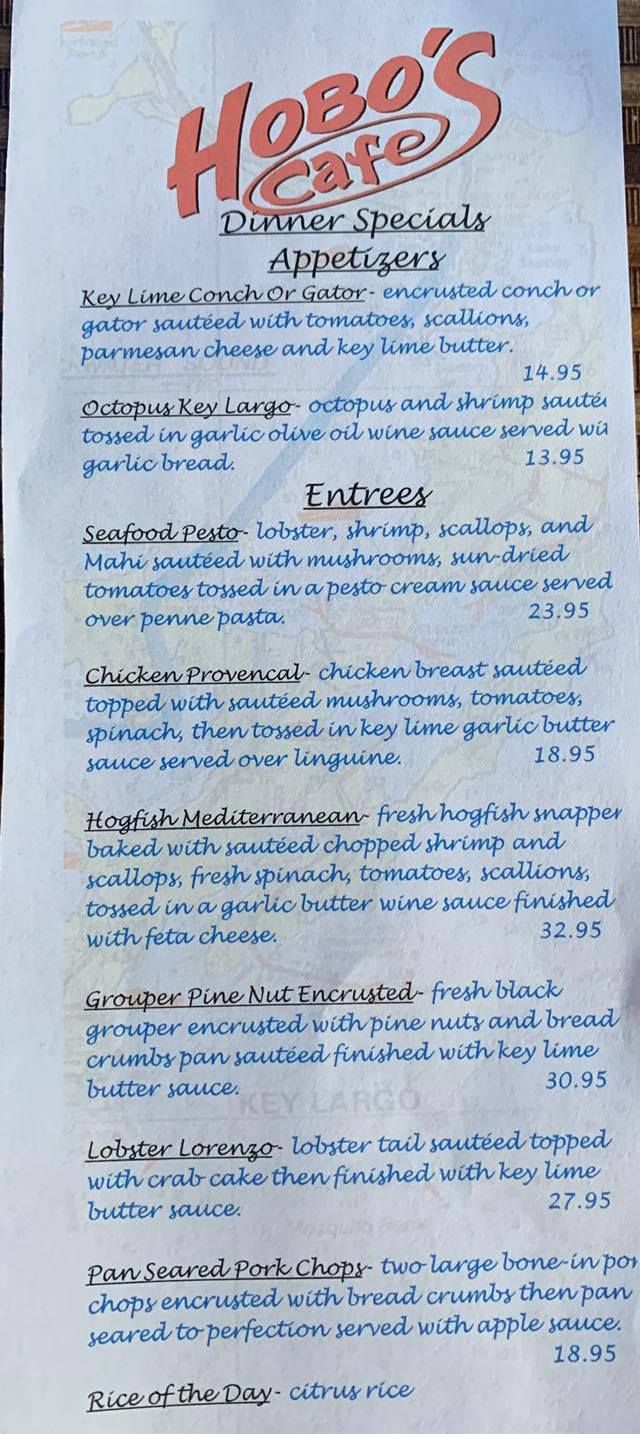 HOBO'S
Cafe
Dinner Specials
Appetizers
Key Lime Conch Or Gator- encrusted conch or
gator sautéed with tomatoes, scallions,
parmesan cheese and key lime butter.
14.95
Octopus Key Largo- octopus and shrimp
tossed in garlic olive oil wine sauce served
garlic bread. 13.95
Entrees
Seafood Pesto- lobster, shrimp, scallops, and
Mahi sautéed with mushrooms, sun-dried
tomatoes tossed in a pesto cream sauce served
over penne pasta. 23.95
Chicken Provencal- chicken breast sautéed
topped with sautéed mushrooms, tomatoes,
spinach, then tossed in key lime garlic butter
sauce served over linguine. 18.95
Hogfish Mediterranean- fresh hogfish snapper
baked with sautéed chopped shrimp and
scallops, fresh spinach, tomatoes, scallions,
tossed in a garlic butter wine sauce finished
with feta cheese. 32.95
Grouper Pine Nut Encrusted- fresh black
grouper encrusted with pine nuts and bread
crumbs pan sautéed finished with key lime
butter sauce. 30.95
KEY LARGO
Lobster Lorenzo- lobster tail sautéed topped
with crab cake then finished with key lime
butter sauce. 27.95
Pan Seared Pork Chops- two large bone-in
chops encrusted with bread crumbs then pan
seared to perfection served with apple sauce.
18.95
Rice of the Day- citrus rice